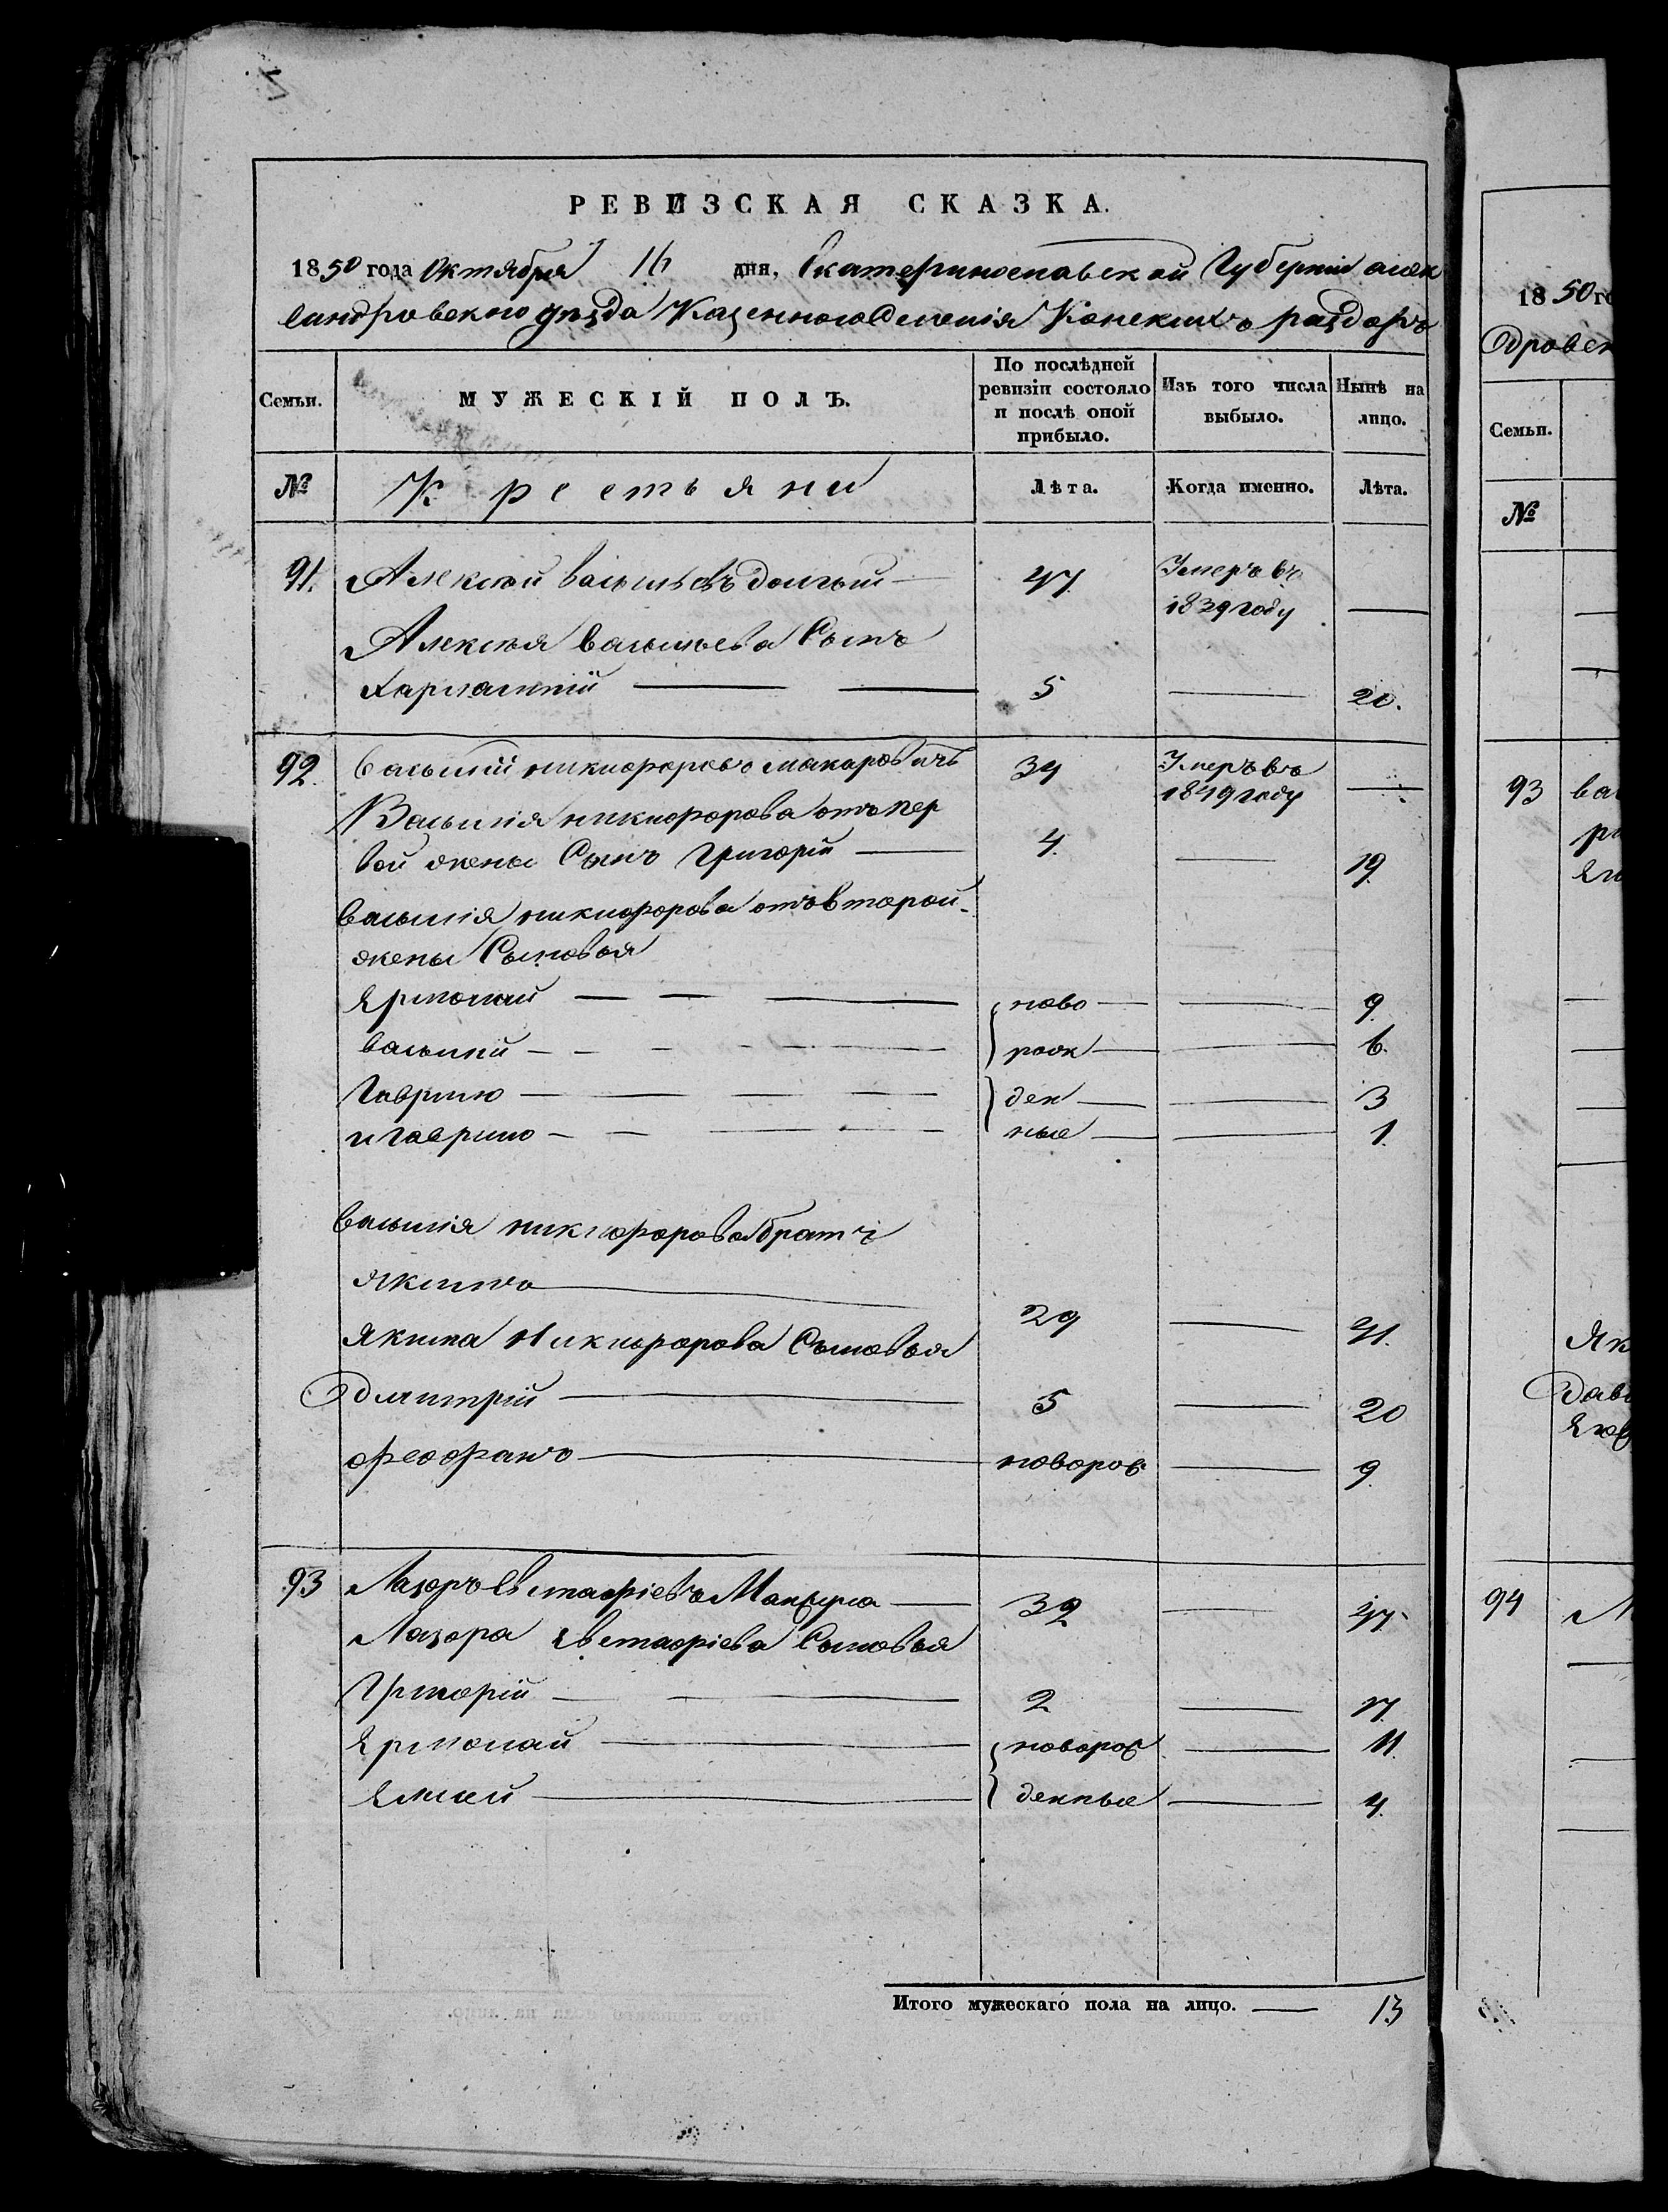 РЕВИЗСКАЯ СКАЗКА.
1850 года Октября 16 дня, Екатеринославской Губернии алек
сандровскаго уѣзда Казеннаго Селенія Конскихъ раздоръ
Семьи.
МУЖЕСКІЙ ПОЛЪ.
По послѣдней ревизіи состояло и послѣ оной прибыло.
Изъ того числа выбыло.
Нынѣ на лицо.
№
Крестьяни
Лѣта.
Когда именно.
Лѣта.
91. Алексѣй васильевъ долгий 47 Умеръ въ
1839 году
Алексѣя васильева Сынъ
Харлампій 5 20.
92. василій никифоровъ макаровичъ 34 Умеръ въ
1849 году
Василія никифорова отъ пер
вой жены Сынъ Григорій 4. 19.
василія никифорова отъ второй
жены Сыновья
Ермолай ново 9.
василий рож 6.
Гаврило ден 3
и Гаврило ные 1.
василія никифорова братъ
Якимъ 29 44.
Якима Никифорова Сыновья
Дмитрій 5 20
феофанъ новорож 9.
93 Лазорь Евстафіевъ 32 47.
Лазора Евстафіева Сыновья
Григорій 2 17.
Ермолай новорож 11.
денные 4.
Итого мужескаго пола на лицо. 13
1850 го
дровск
Семьи.
№
93 ва
Як
Дав
94